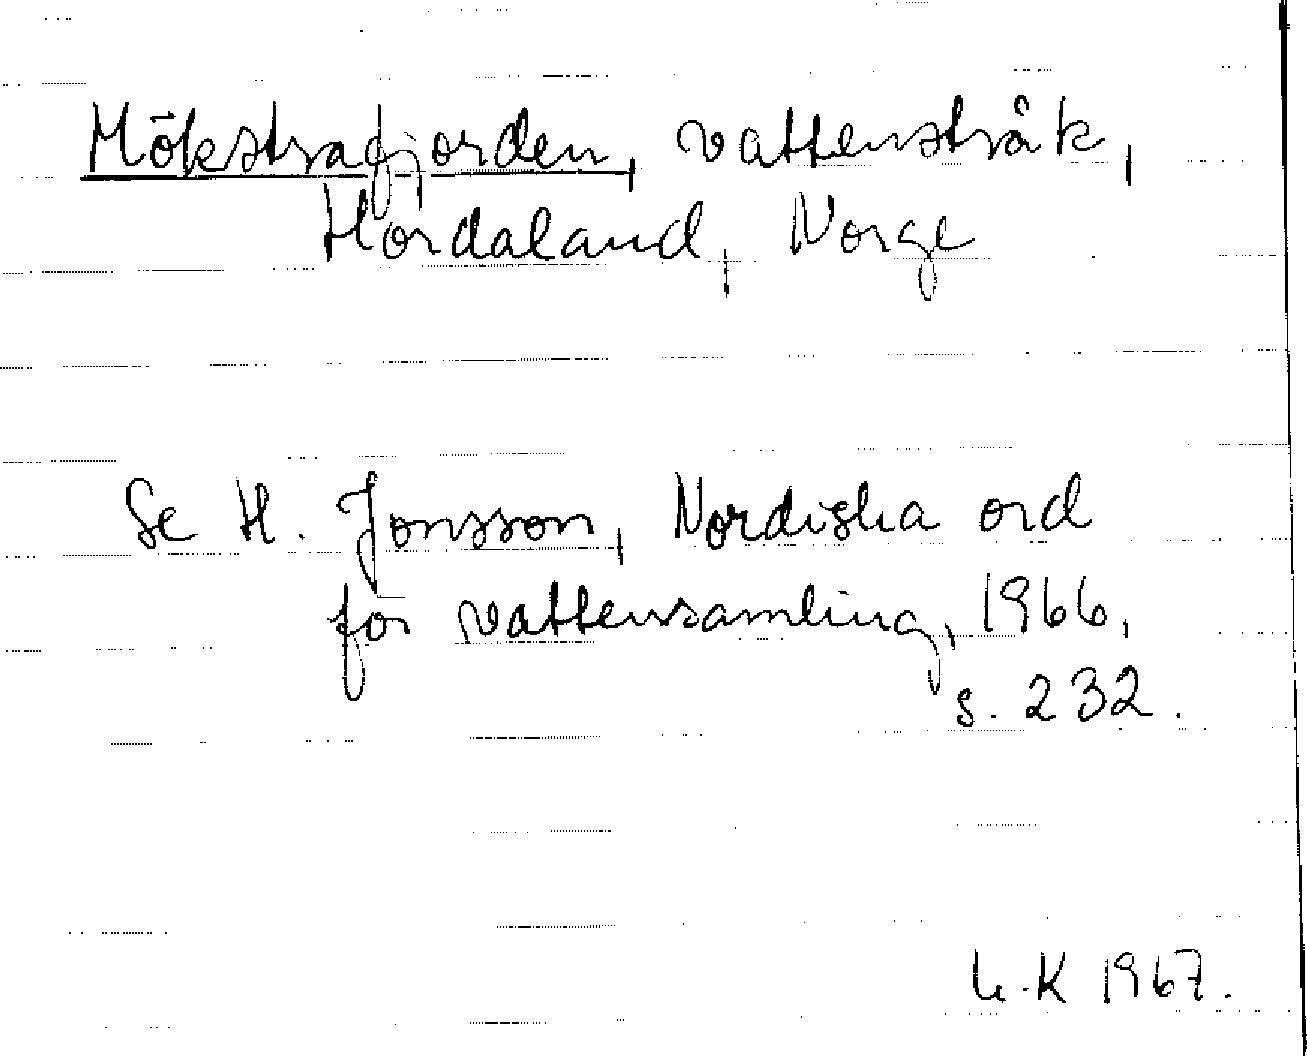 Mökstrafjorden, vattenstråk,
Hordaland, Norge
Se H. Jonsson, Nordiska ord
for vattensamling, 1966,
s. 232.
K 1967.